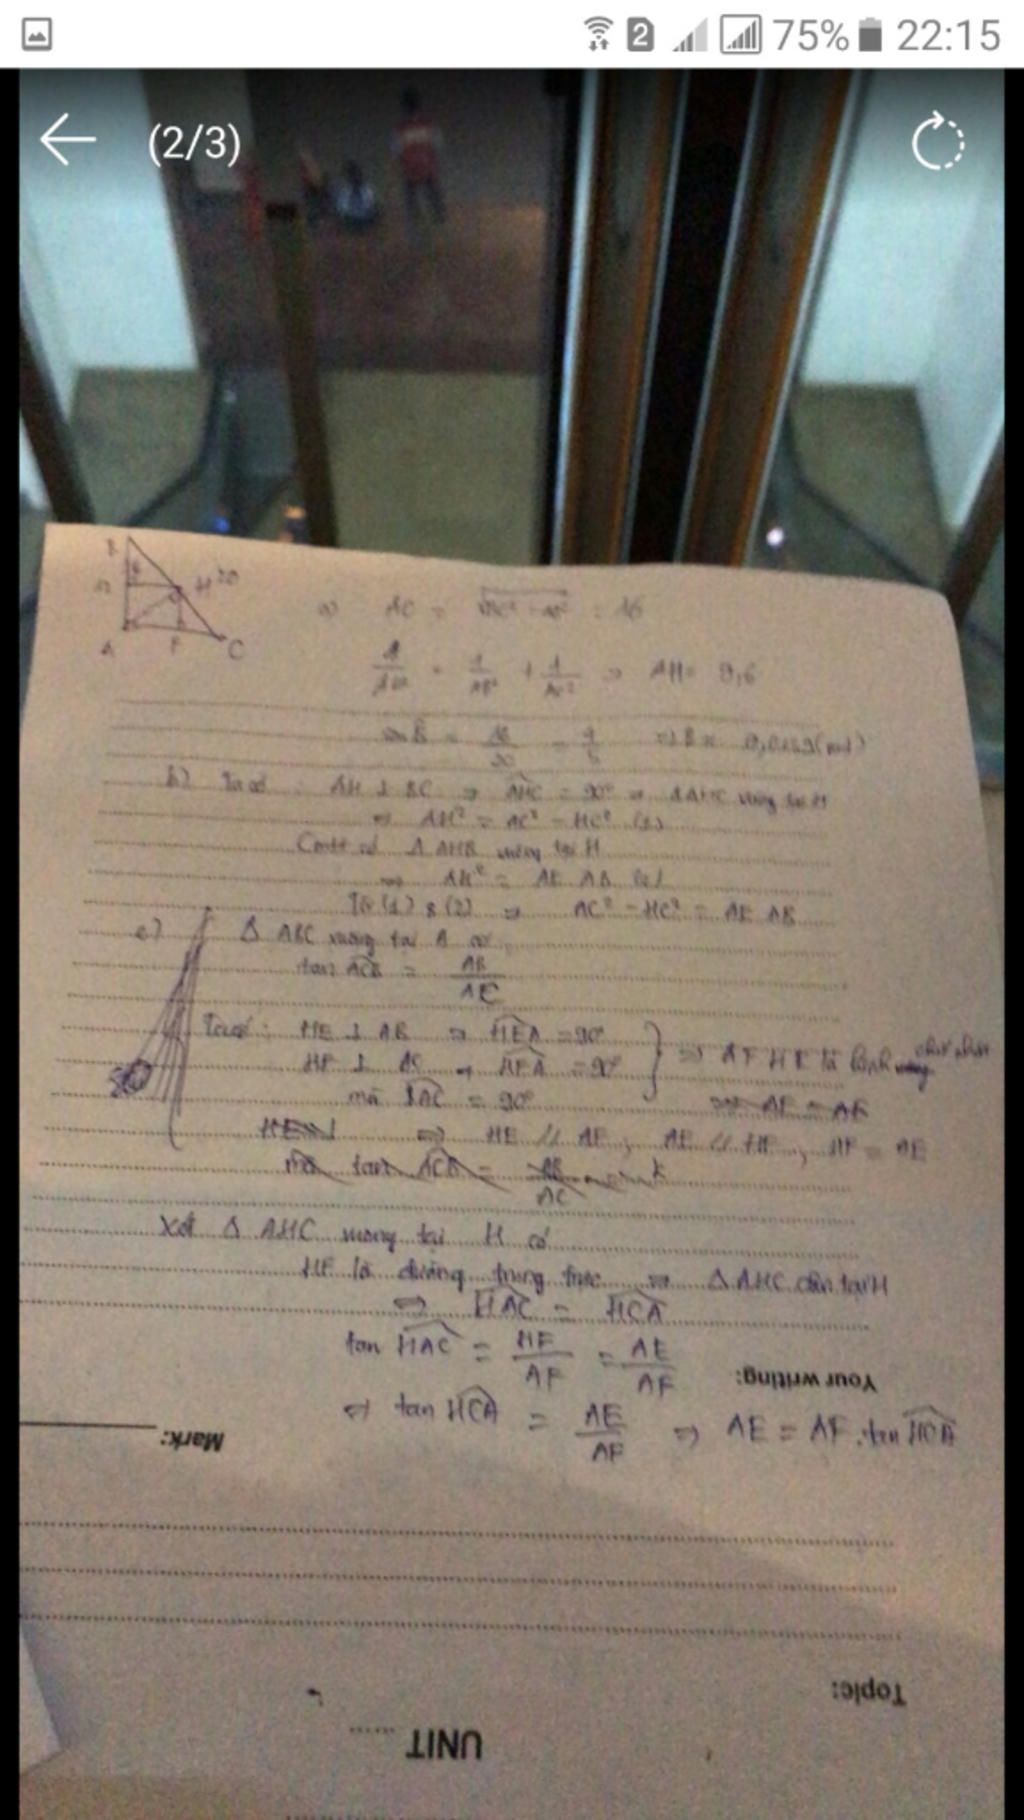 2 75% 22:15
(2/3)
H 20
A F C
a) AC = = 16
1/AH² = 1/AB² + 1/AC² ⇒ AH = 9,6
b) Ta có : AH ⊥ BC ⇒ AHC = 90° ⇒ ΔAHC vuông tại H
⇒ AH² = AC² - HC² (1)
Δ AHB vuông tại H
⇒ AH² = AE AB (2)
Từ (1) & (2) ⇒ AC² - HC² = AE AB
c) Δ ABC vuông tại A có
tan ACB = AB/AC
Ta có : HE ⊥ AB ⇒ HEA = 90°
HF ⊥ AC ⇒ HFA = 90° } ⇒ AFHE là hình chữ nhật
mà BAC = 90° ⇒ AF = AE
⇒ HE // AF , AE // HF , HF = AE
mà tan ACB = AB/AC
Xét Δ AHC vuông tại H có
HF là đường trung trực ⇒ Δ AHC cân tại H
⇒ HAC = HCA
tan HAC = HF/AF = AE/AF
Your writing:
⇒ tan HCA = AE/AF ⇒ AE = AF . tan HCA
Mark:
Topic:
UNIT ......